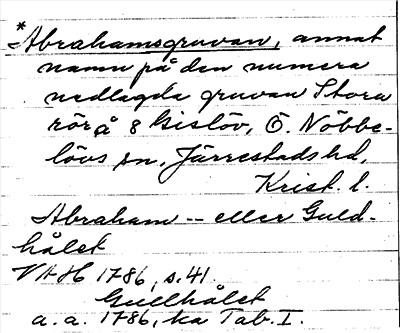 *Abrahamsgruvan, annat
namn på den numera
nedlagda gruvan Stora
rör å 8 Gislöv, Ö. Nöbbe-
lövs sn, Järrestads hd,
Krist. l.
Abraham -- eller Guld-
hålet
VAH 1786, s. 41.
Gullhålet
a. a. 1786, ka Tab. I.